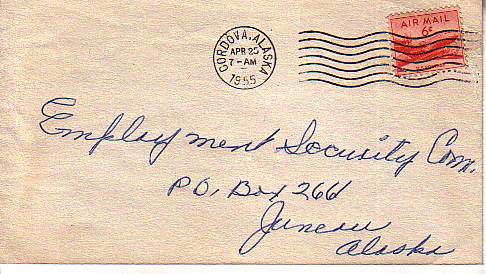 CORDOVA, ALASKA
APR 25
7-AM
1955
AIR MAIL
6¢
Employment Security Com.
P.O. Box 266
Juneau
Alaska